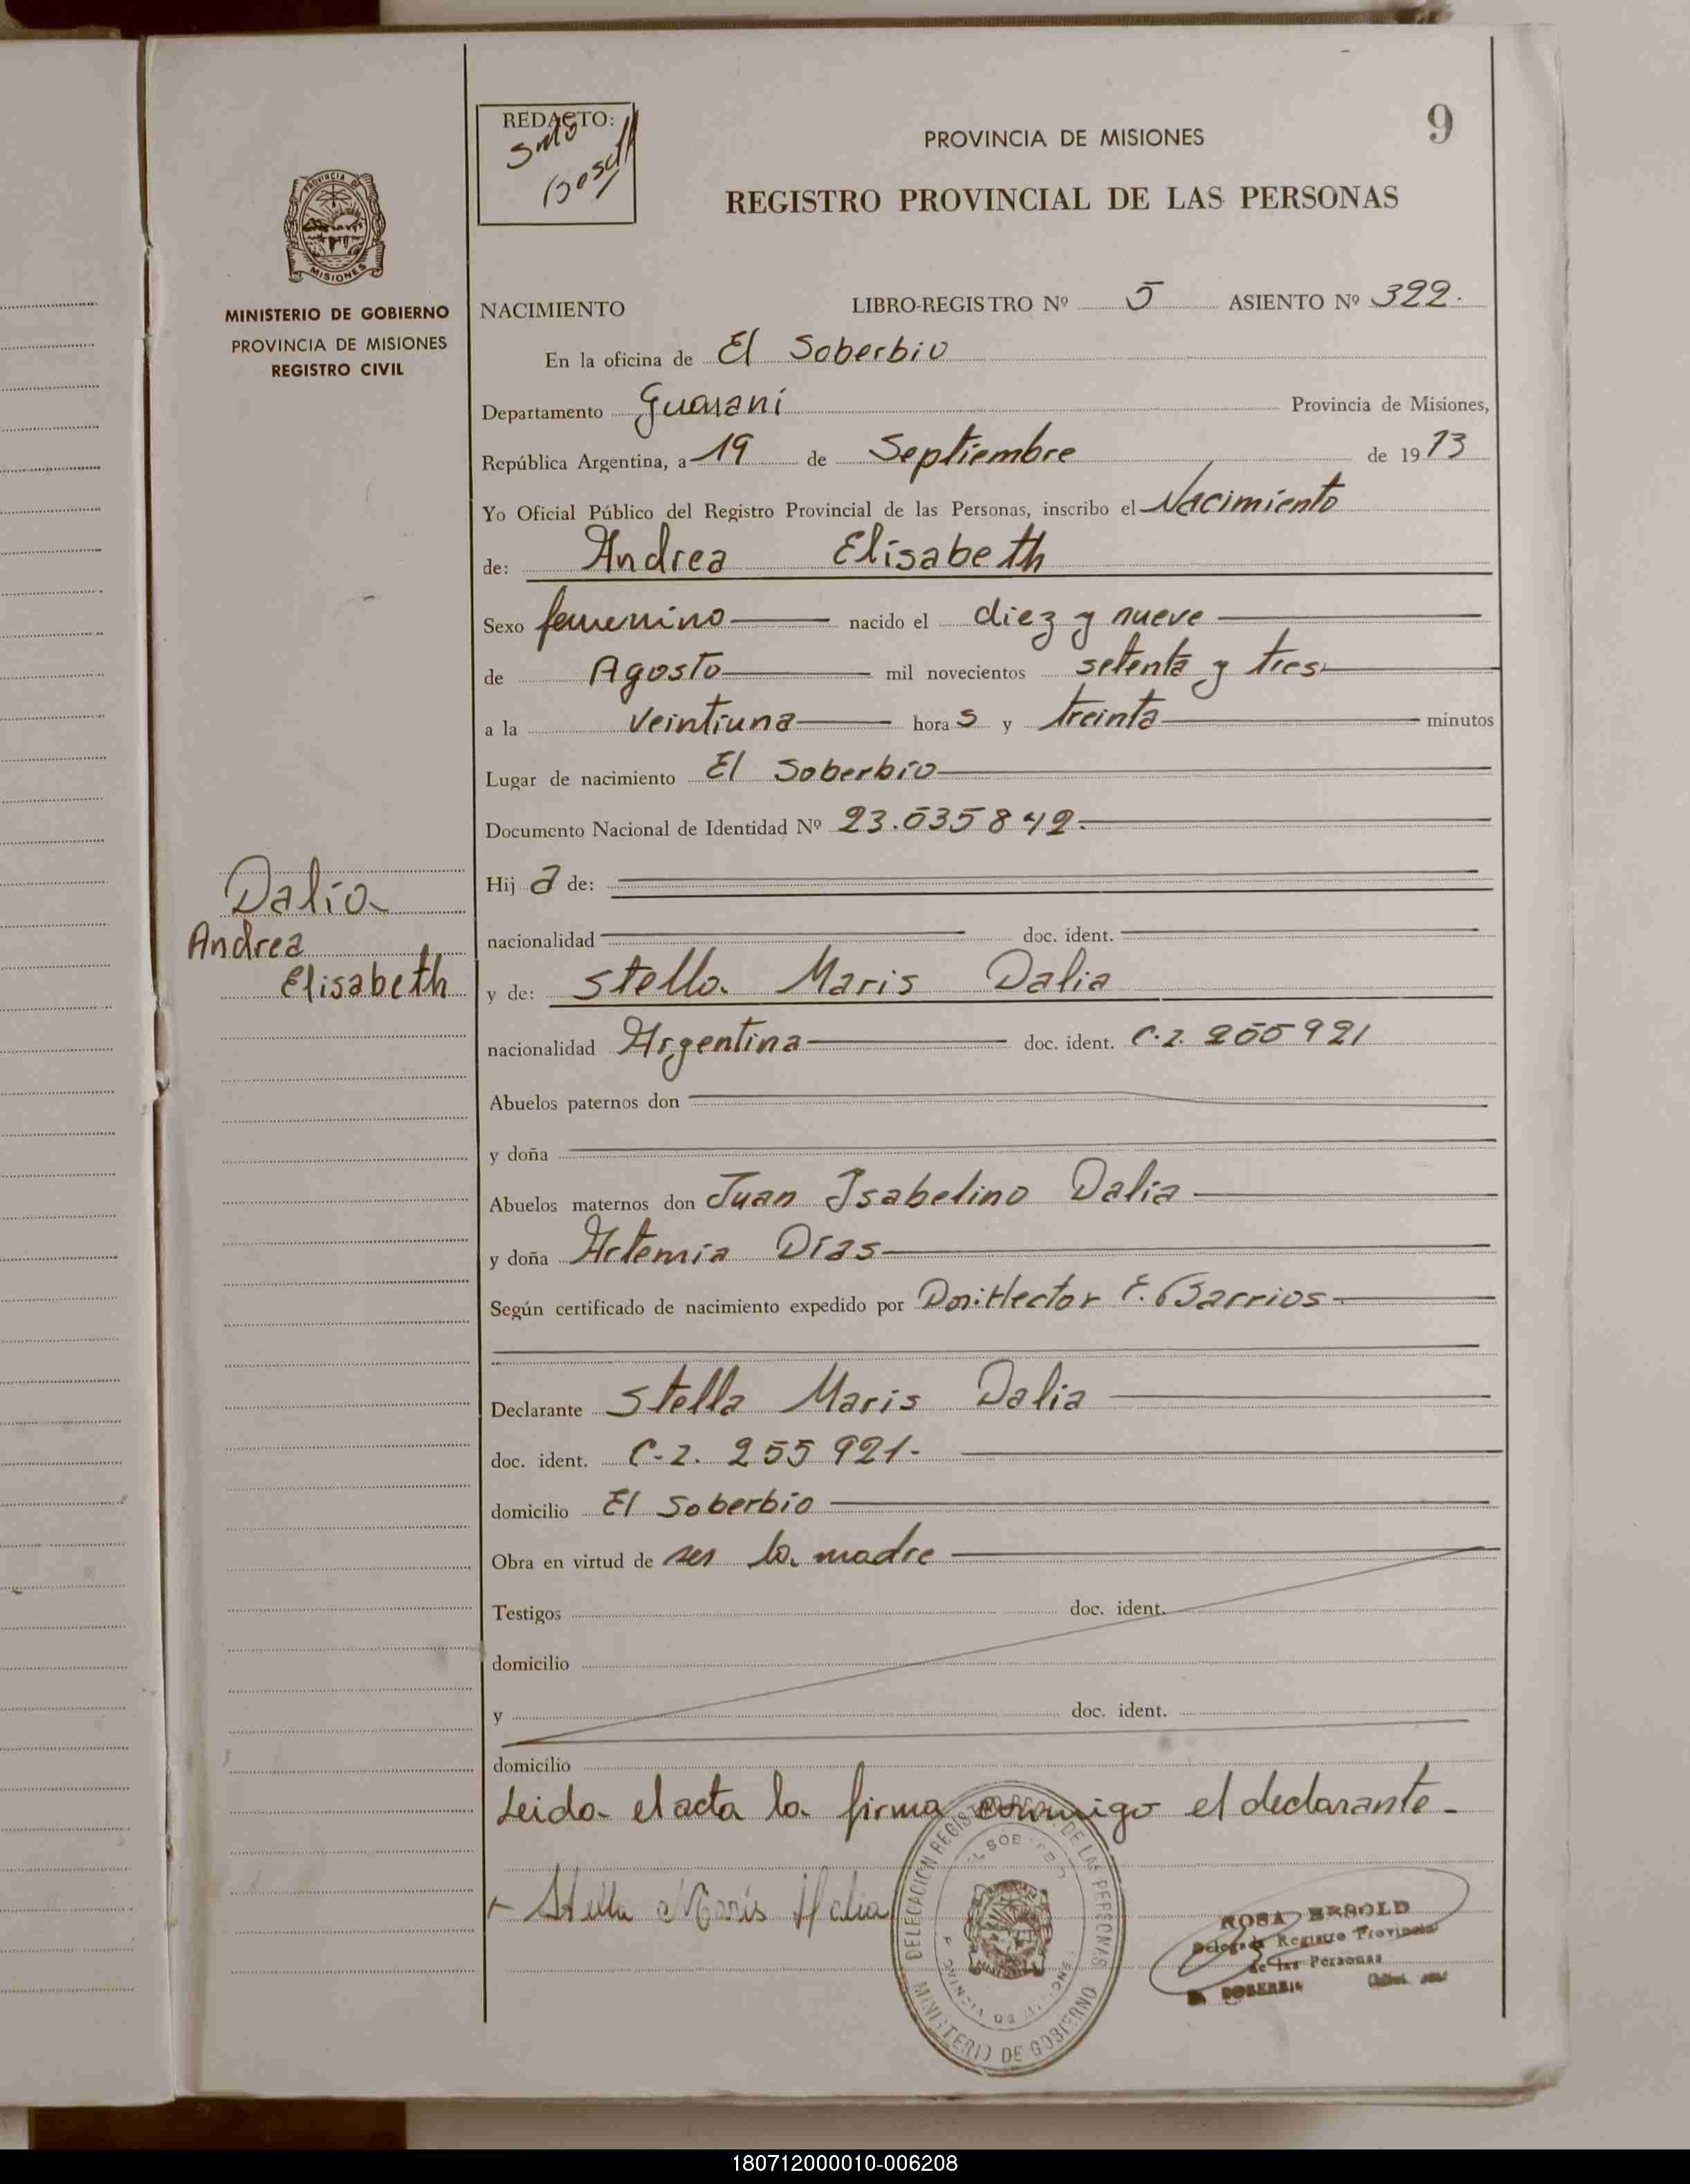 9
REDACTO:
PROVINCIA DE MISIONES
REGISTRO PROVINCIAL DE LAS PERSONAS
PROVINCIA DE
MISIONES
MINISTERIO DE GOBIERNO
PROVINCIA DE MISIONES
REGISTRO CIVIL
NACIMIENTO LIBRO-REGISTRO Nº 5 ASIENTO Nº 322.
En la oficina de El Soberbio
Departamento Guarani Provincia de Misiones,
República Argentina, a 19 de Septiembre de 1973
Yo Oficial Público del Registro Provincial de las Personas, inscribo el Nacimiento
de: Andrea Elisabeth
Sexo femenino nacido el diez y nueve
de Agosto mil novecientos setenta y tres
a la veintiuna horas y treinta minutos
Lugar de nacimiento El Soberbio
Documento Nacional de Identidad Nº 23.535842.
Hija de:
nacionalidad doc. ident.
Dalia
Andrea
Elisabeth
y de: Stella Maris Dalia
nacionalidad Argentina doc. ident. C.I. 255921
Abuelos paternos don
y doña
Abuelos maternos don Juan Isabelino Dalia
y doña Artemia Dias
Según certificado de nacimiento expedido por Hector E. Barrios
Declarante Stella Maris Dalia
doc. ident. C-I. 255921.
domicilio El Soberbio
Obra en virtud de ser la madre
Testigos doc. ident.
domicilio
y doc. ident.
domicilio
Leida el acta la firma conmigo el declarante
Stella Maris Dalia
DELEGACION REGISTRO DE LAS PERSONAS
MINISTERIO DE GOBIERNO
ROSA BESOLD
Delegada Registro Provincial
de las Personas
180712000010-006208